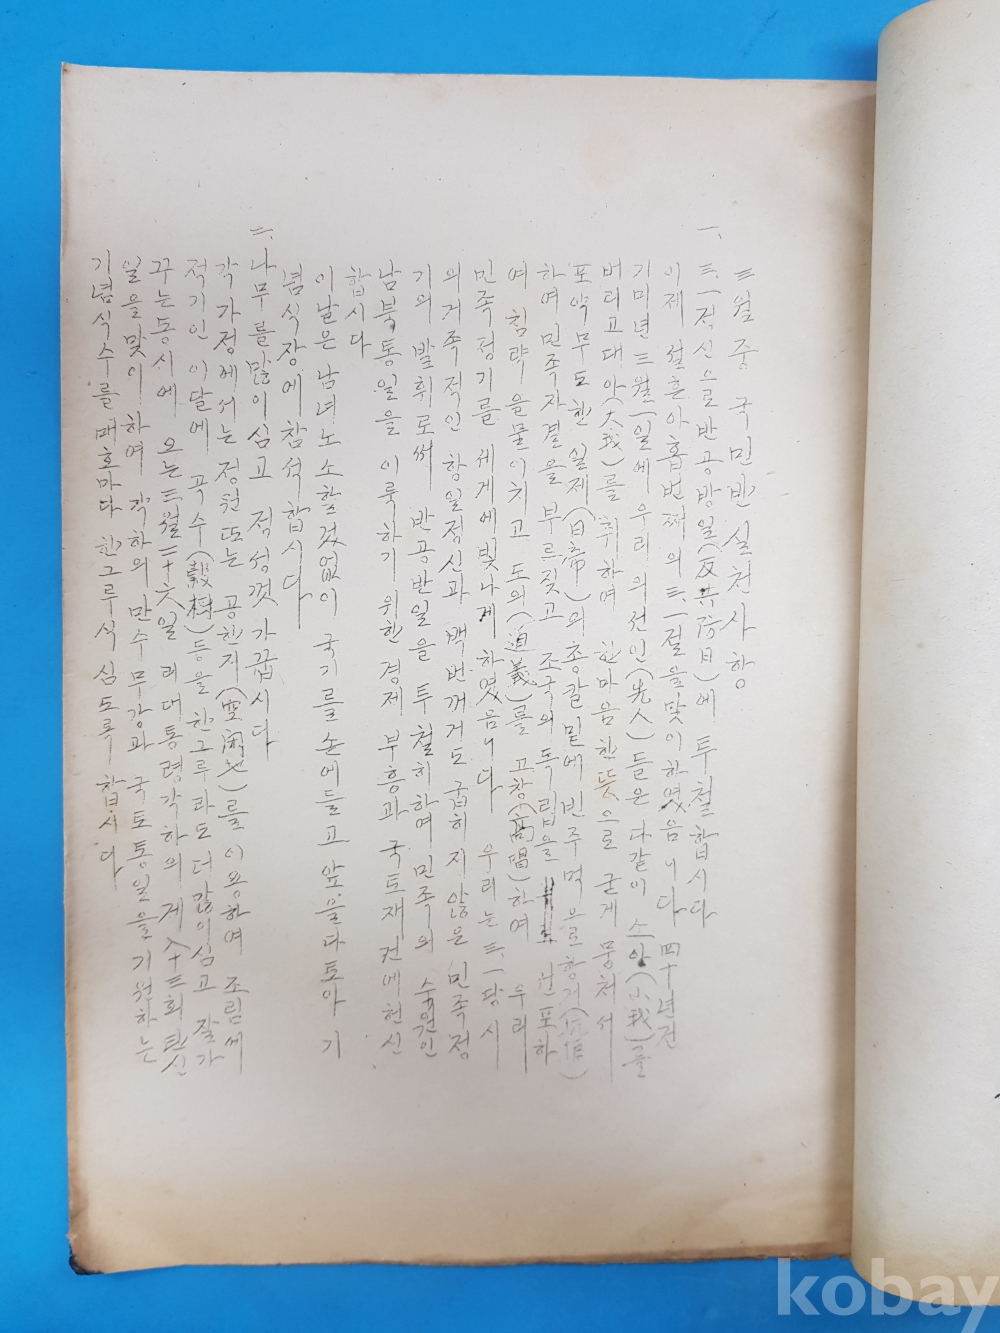 三월중 국민반 실천사항
一、三一정신으로 반공방일(反共防日)에 투철합시다
이제 설흔아홉번째의 三.一절을 맞이하였음니다 四十년전
기미년 三월一일에 우리의 선인(先人)들은 다같이 소아(小我)를
버리고 대아(大我)를 취하여 한마음 한뜻으로 굳게 뭉처서
포악무도한 일제(日帝)의 총칼밑에 빈주먹으로 항거
하여 민족자결을 부르짖고 조국의 독립을 선포하
여 침략을 물이치고 도의(道義)를 고창(高唱)하여 우리
민족정기를 세게에 빛나게 하였음니다 우리는 三.一당시
의 거족적인 항일정신과 백번꺼거도 굽히지 않은 민족정
기의 발휘로써 반공반일을 투철히하여 민족의 숙원인
남북통일을 이룩하기 위한 경제부흥과 국토재건에 헌신
합시다
이날은 남녀노소할것없이 국기를 손에들고 앞을다토아 기
념식장에 참석합시다
二、나무를 많이 심고 정성껏 가꿉시다
각 가정에서는 정원 또는 공한지(空閑地)를 이용하여 조림에
적기인 이달에 곡수(穀樹)등을 한그루라도 더많이심고 잘가
꾸는 동시에 오는 三월二十六일 리대통령각하의 제八十三회 탄신
일을 맞이하여 각하의 만수무강과 국토통일을 기원하는
기념식수를 매호마다 한그루식 심도록 합시다
kobay